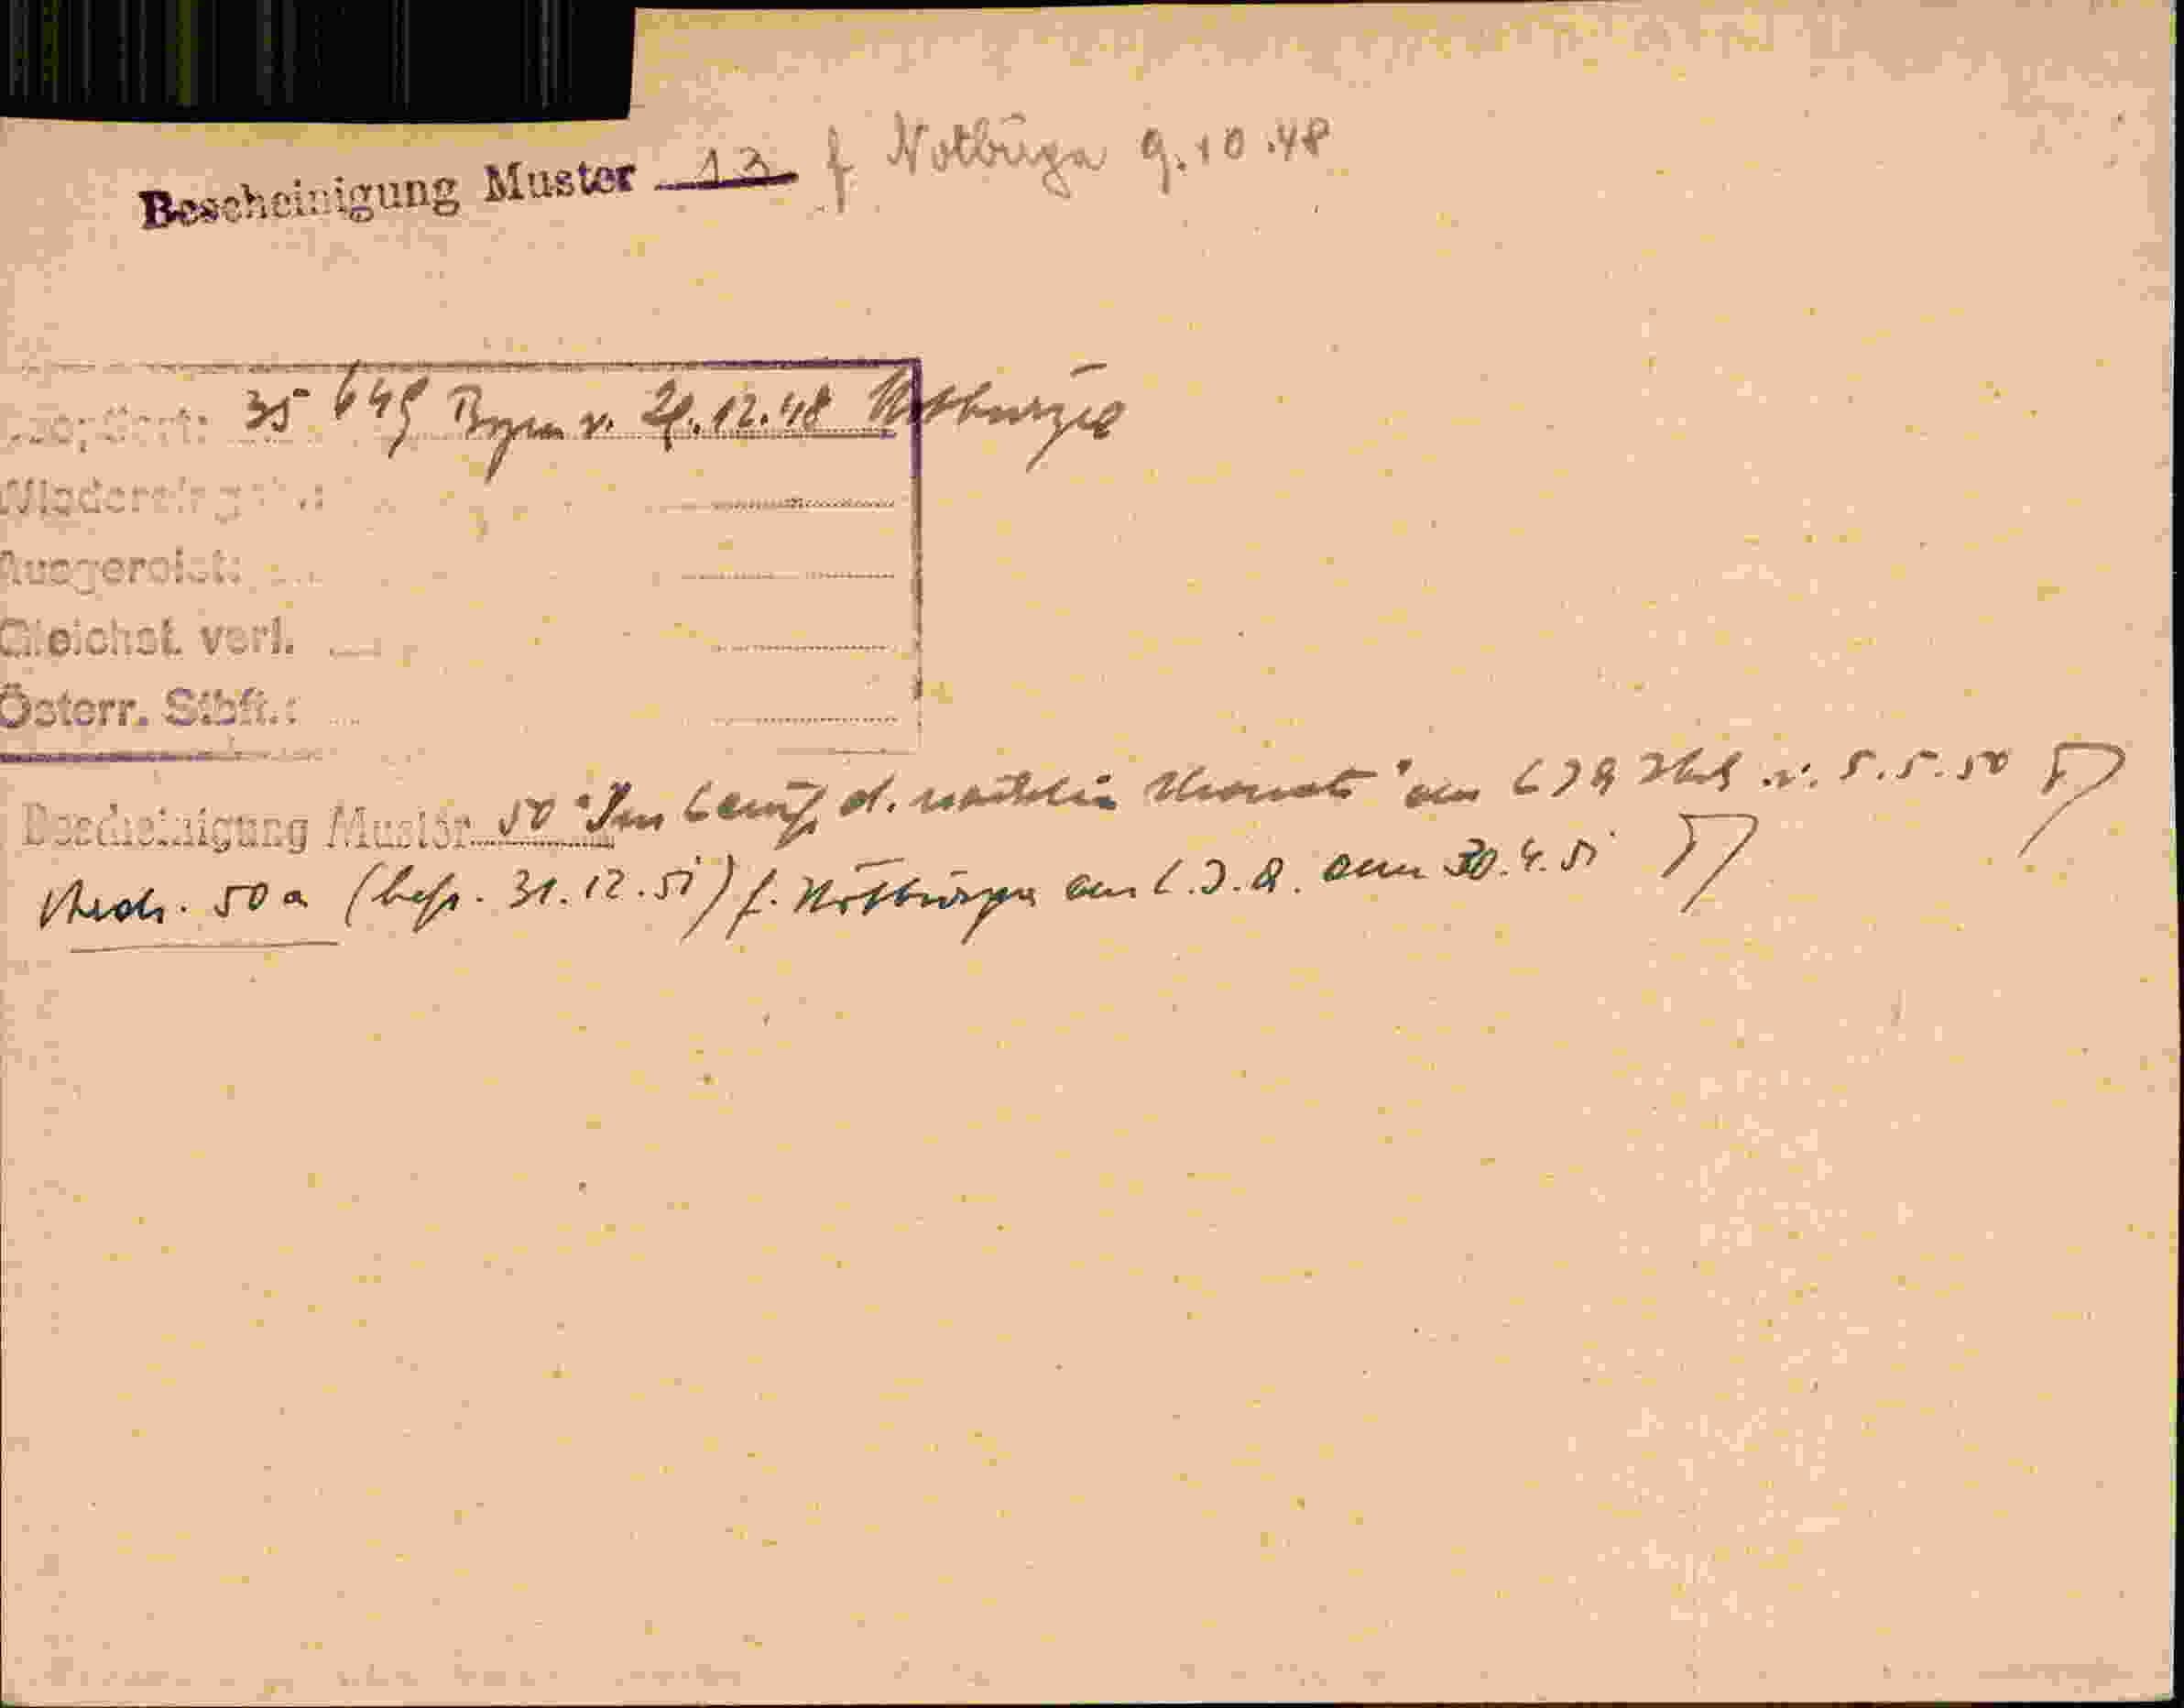 Bescheinigung Muster 13 f. Notburga 9.10.48
35 649 Bozen v. 21.12.48 Notburga
Ausgereist:
Gleichst. verl.
Österr. Stbft.:
Bescheinigung Muster 50 "Im Lauf d. nächsten Monats" am v. 5.5.50
50a (befr. 31.12.51) f. Notburga am 30.4.51